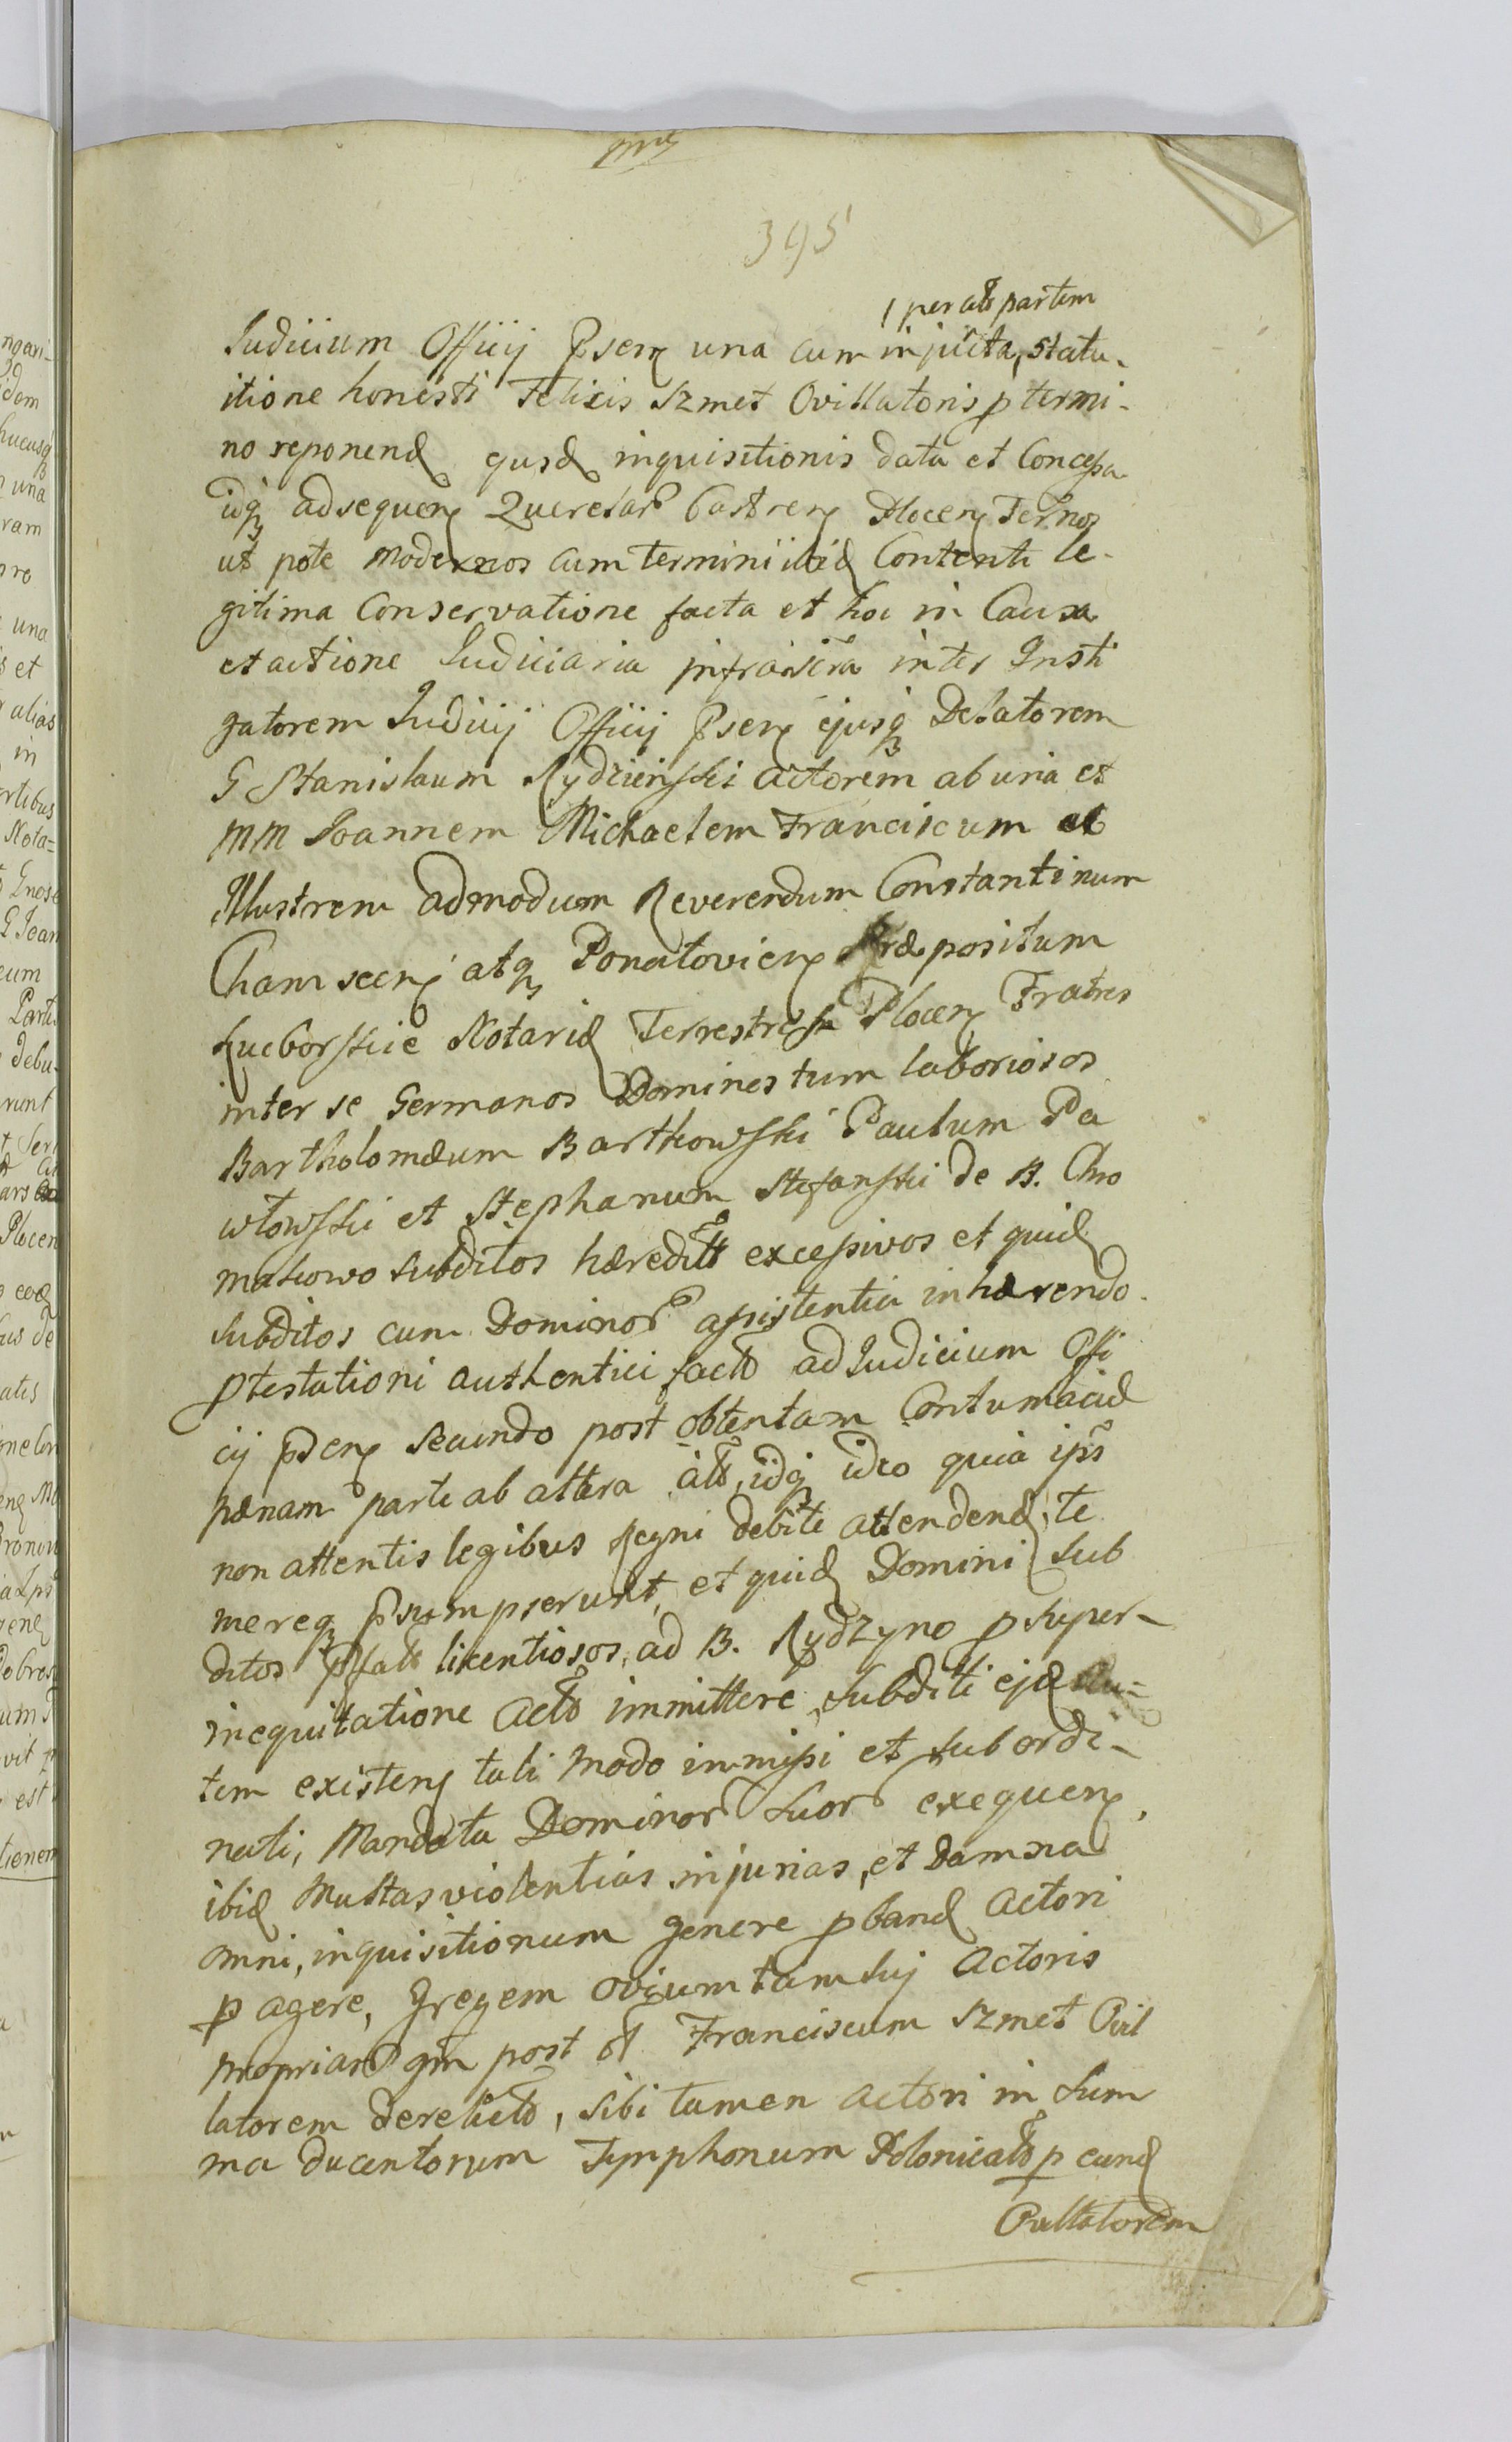 395
per actā partem
Judicium Officij Psens una cum injucta, statu-
itione honesti Felicis Szmet Ovillatoris p termi-
no reponend ejusd inquisitionis data et Concessa
idq adsequens Querelarū Castrens Plocens Ternos
ut pote modernos cum termini ibid Contenti le-
gitima Conservatione facta et hoc in Causa
et actione Judiciaria infrascra inter Insti
gatorem Judicij Officij Psens ejusq Delatorem
G Stanislaum Rydzienski actorem ab una et
MM Joannem Michaelem Franciscum et
Illustrem admodum Reverendum Constantinum
Chamscens atq Ponatoviens Præpositum
Lucborskie Notarid Plocens Fratres
inter se Germanos Dominos tum laboriosos
Bartholomæum Bartkowski Paulum Pa
włowski et Stephanum Stefanski de B. Cho
makowo subditos hæredit excessivos et quid
subditos cum Dominor assistentia inhærendo
ptestationi authentici fact ad Judicium Offi
cij psens secundo post obtentam Contumaciæ
pænam parte ab altera act, idq ideo quia ipsi
non attentis legibus Regni debite attendend, te
mereq psumpserunt, et quid Domini sub
ditos pfat licentiosos, ad B. Rydzyno p super-
inequitatione act immittere, subditi ejd
tem existens tali modo immissi et subordi-
nati, Mandata Dominor suor exequens,
ibid Multas violentias injurias, et Damna
omni, inquisitionum genere pband Actori
p agere, Gregem ovium tam suj Actoris
propriar qm post Franciscum Szmet Ovil
latorem derelict, sibi tamen actori in sum
ma ducentorum Tymphonum Polonical p eund
Ovillatorem